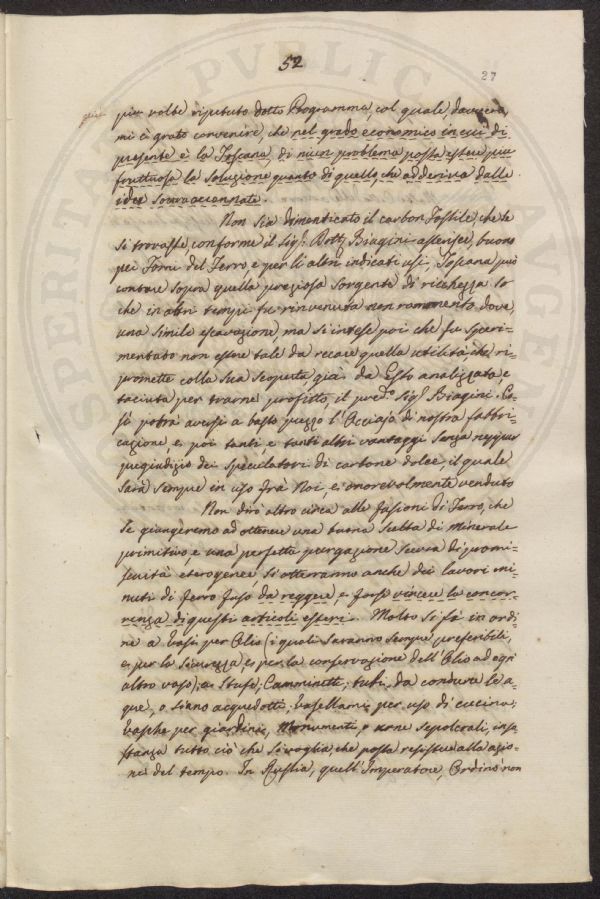 52
27
più volte riputato dotto Programma, col quale, davvero,
mi è grato convenire, che nel grado economico in cui di
presente è la Toscana, di niun problema possa essere più
fruttuosa la Soluzione quanto di quello, che ad deriva dalle
idee Sovraccennate.
Non Sia dimenticato il carbon Fossile, che Se
Si trovasse, conforme il Sig.r Dott. Biagini asserisce, buono
pei Forni del Ferro, e per li altri indicati usi, Toscana può
contare Sopra quella preziosa Sorgente di ricchezza. Io
che in altri tempi fu rinvenuta non rammento dove,
una Simile escavazione, ma Si intese poi che fu Speri=
mentato non essere tale da recare quella utilità, che ri=
promette colla Sua Scoperta già da Esso analizzata, e
taciuta per trarne profitto, il pred.o Sig.r Biagini. Co=
Sì potrà aversi a basso prezzo l'Acciajo di nostra fabbri=
cazione e poi tanti, e tanti altri vantaggi Senza neppur
pregiudizio dei Speculatori di carbone dolce, il quale
Sarà Sempre in uso frà Noi, e onorevolmente venduto
Non dirò altro circa alle fusioni di Ferro, che
Se giungeremo ad ottenere una buona Scelta di Minerale
primitivo, e una perfetta purgazione Scevra di promi=
scuità eterogenee, Si otterranno anche dei lavori mi=
nuti di ferro fuso da reggere, e forse vincere la concor=
renza di questi articoli esteri. Molto Si fà in ordi
ne a Vasi per Olio (i quali Saranno Sempre preferibili,
e, per la Sicurezza, e per la conservazione dell'Olio ad ogni
altro vaso); a Stufe; Camminetti; tubi, da condurre le a=
que, o Siano acquedotti; Vasellami per uso di cucina;
Vasche per giardini, Monumenti, e urne Sepolcrali, in So
stanza tutto ciò che Si voglia, che possa resistere alla azio=
ne del tempo. In Russia, quell'Imperatore, Ordinò non